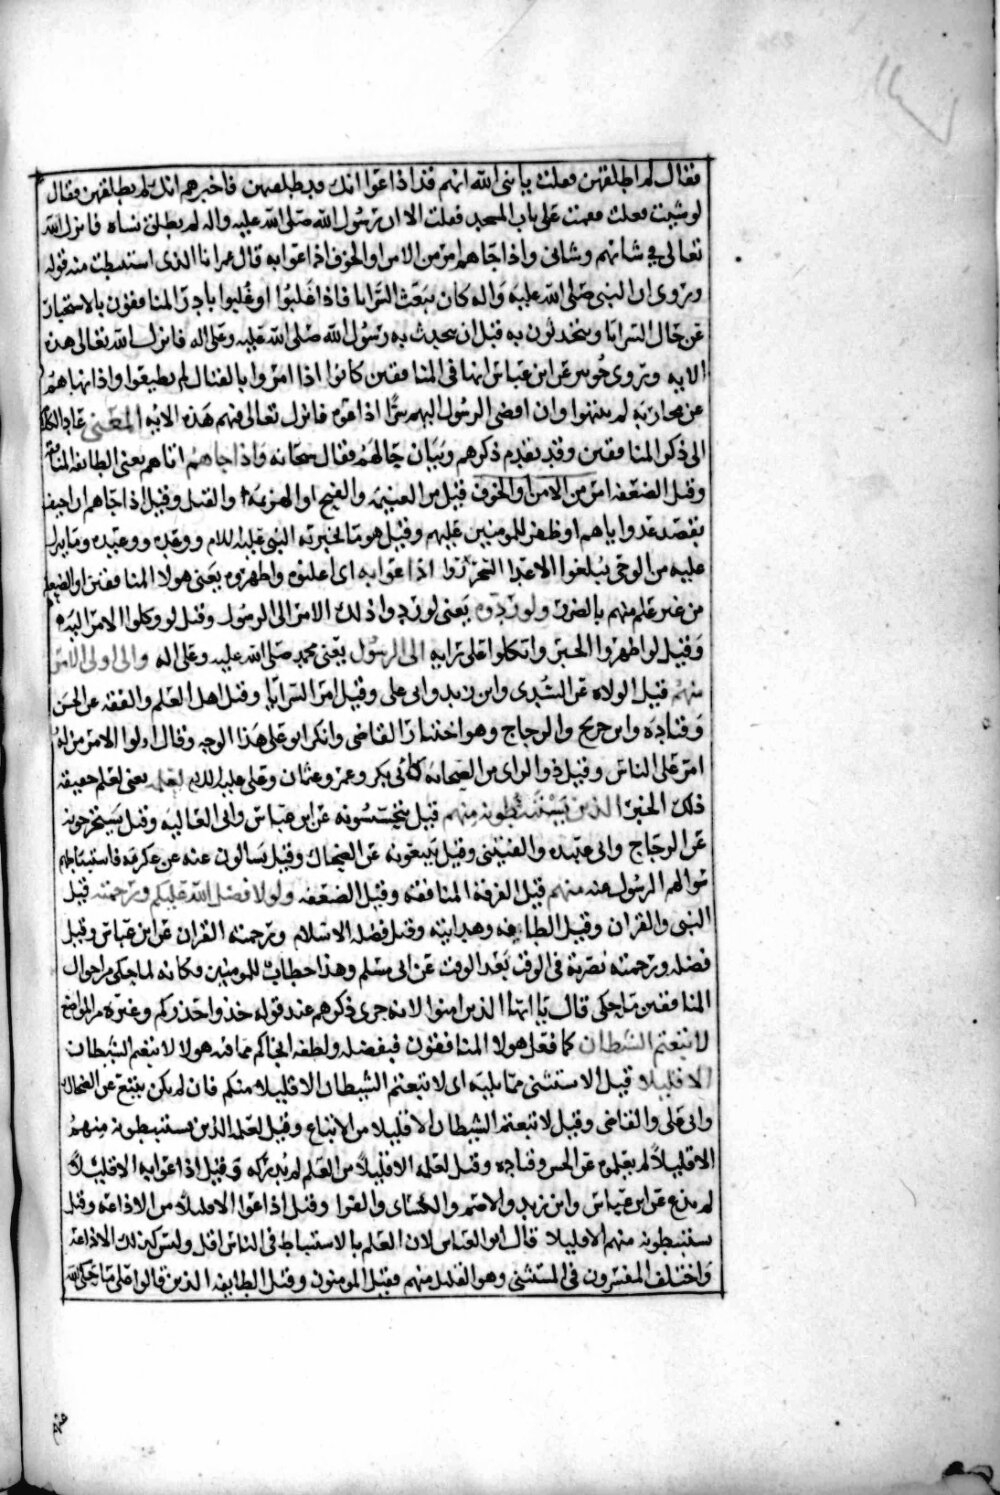 فقال لم اطلقهن فقلت يا نبي الله انهم قد اذاعوا انك قد طلقتهن فاخبرهم انك لم تطلقهن فقال
لو شيت فعلت فقمت على باب المسجد فقلت الا ان رسول الله صلى الله عليه واله لم يطلق نساه فانزل الله
تعالى في شانهم وشاني واذا جاهم امر من الامن او الخوف اذاعوا به قال عمر انا الذي استنبطت منه قوله
وروي ان النبي صلى الله عليه واله كان يبعث السرايا فاذا غلبوا او غُلبوا بادر المنافقون بالاستخبار
عن حال السرايا ويتحدثون به قبل ان يحدث به رسول الله صلى الله عليه وعلى اله فانزل الله تعالى هذه
الايه وروى جويبر عن ابن عباس انها في المنافقين كانوا اذا امروا بالقتال لم يطيعوا واذا نهاهم
عن محاربه لم ينتهوا وان افضى الرسول اليهم سرا اذاعوه فانزل تعالى فيهم هذه الايه المعنى عاد الكلام
الى ذكر المنافقين وقد تقدم ذكرهم وبيان حالهم فقال سبحانه واذا جاهم اتاهم يعني الطايفه المنافقه
وقيل الضعفه امر من الامن او الخوف قيل من الغنيمه والفتح او الهزيمه والقتل وقيل اذا جاهم اراجيف
بقصد عدو اياهم او ظفر للمومنين عليهم وقيل هو ما يخبر به النبي عليه السلام ووعده ووعيده وما ينزل
عليه من الوحي يبلغوا الاعدا التحرزوا اذاعوا به اي اعلنوه واظهروه يعني هولا المنافقين او الضعفه
من غير علم منهم بالضرر ولو ردوه يعني لو ردوا ذلك الامر الى الرسول وقيل لو وكلوا الامر اليه
وقيل لو اظهروا الخبر واتكلوا على رايه الى الرسول يعني محمد صلى الله عليه وعلى اله والى اولي الامر
منهم قيل الولاه عن السدي وابن زيد وابي علي وقيل امر السرايا وقيل اهل العلم والفقه عن الحسن
وقتاده وابن جريج والزجاج وهو اختيار القاضي وانكر ابو علي هذا الوجه وقال اولوا الامر من له
امر على الناس وقيل ذوا الراي من الصحابه كابي بكر وعمر وعثمان وعلي عليه السلام لعلمه يعني لعلم حقيقه
ذلك الخبر الذين يستنبطونه منهم قيل يتجسسونه عن ابن عباس وابي العاليه وقيل يستخرجونه
عن الزجاج وابي عبيده والقتيبي وقيل يتبعونه عن الضحاك وقيل يسالون عنه عن عكرمه فاستنباطهم
سوالهم الرسول عنه منهم قيل الفرقه المنافقه وقيل الضعفه ولولا فضل الله عليكم ورحمته قيل
النبي والقران وقيل الطافه وهدايته وقيل فضله الاسلام ورحمته القران عن ابن عباس وقيل
فضله ورحمته نصرته في الوقت بعد الوقت عن ابي مسلم وهذا خطاب للمومنين فكانه لما حكى من احوال
المنافقين ما حكى قال يا ايها الذين امنوا لانه جرى ذكرهم عند قوله خذوا حذركم وغيره من المواضع
لاتبعتم الشيطان كما فعل هولا المنافقون فبفضله ولطفه انجاكم مما فيه هولا لاتبعتم الشيطان
الا قليلا قيل الاستثنى مما يليه اي لاتبعتم الشيطان الا قليلا منكم فان لم يكن يتبع عن الضحاك
وابي علي والقاضي وقيل لاتبعتم الشيطان الا قليلا من الاتباع وقيل لعلمه الذين يستنبطونه منهم
الا قليلا لم يعلموه عن الحسن وقتاده وقيل لعلمه الا قليلا من العلم لم يدركه وقيل اذاعوا به الا قليلا
لم يذع عن ابن عباس وابن زيد والاصم والكساي والفرا وقيل اذاعوا الا قليلا من الاذاعه وقيل
يستنبطونه منهم الا قليلا قال ابو العباس لان العلم بالاستنباط في الناس اقل وليس كذلك الاذاعه
واختلف المفسرون في المستثنى وهو القليل منهم فقيل المومنون وقيل الطايفه الذين قالوا على ما حكى الله